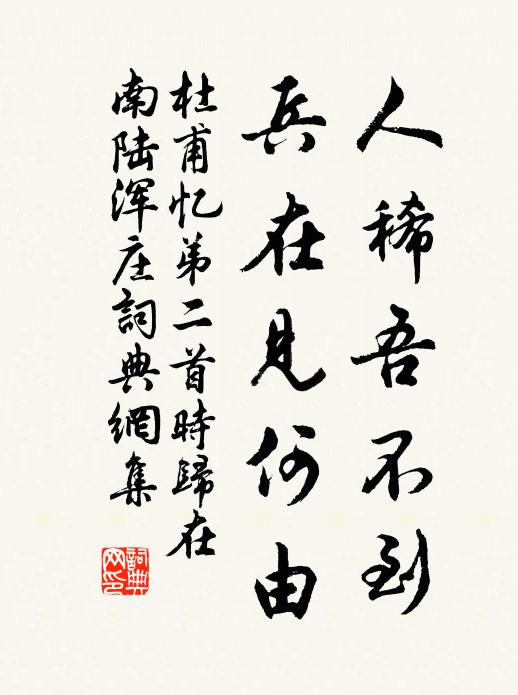 人稀吾不到
兵在见何由
杜甫忆弟二首時歸在
南陆浑庄詞典網集
詞典
网印